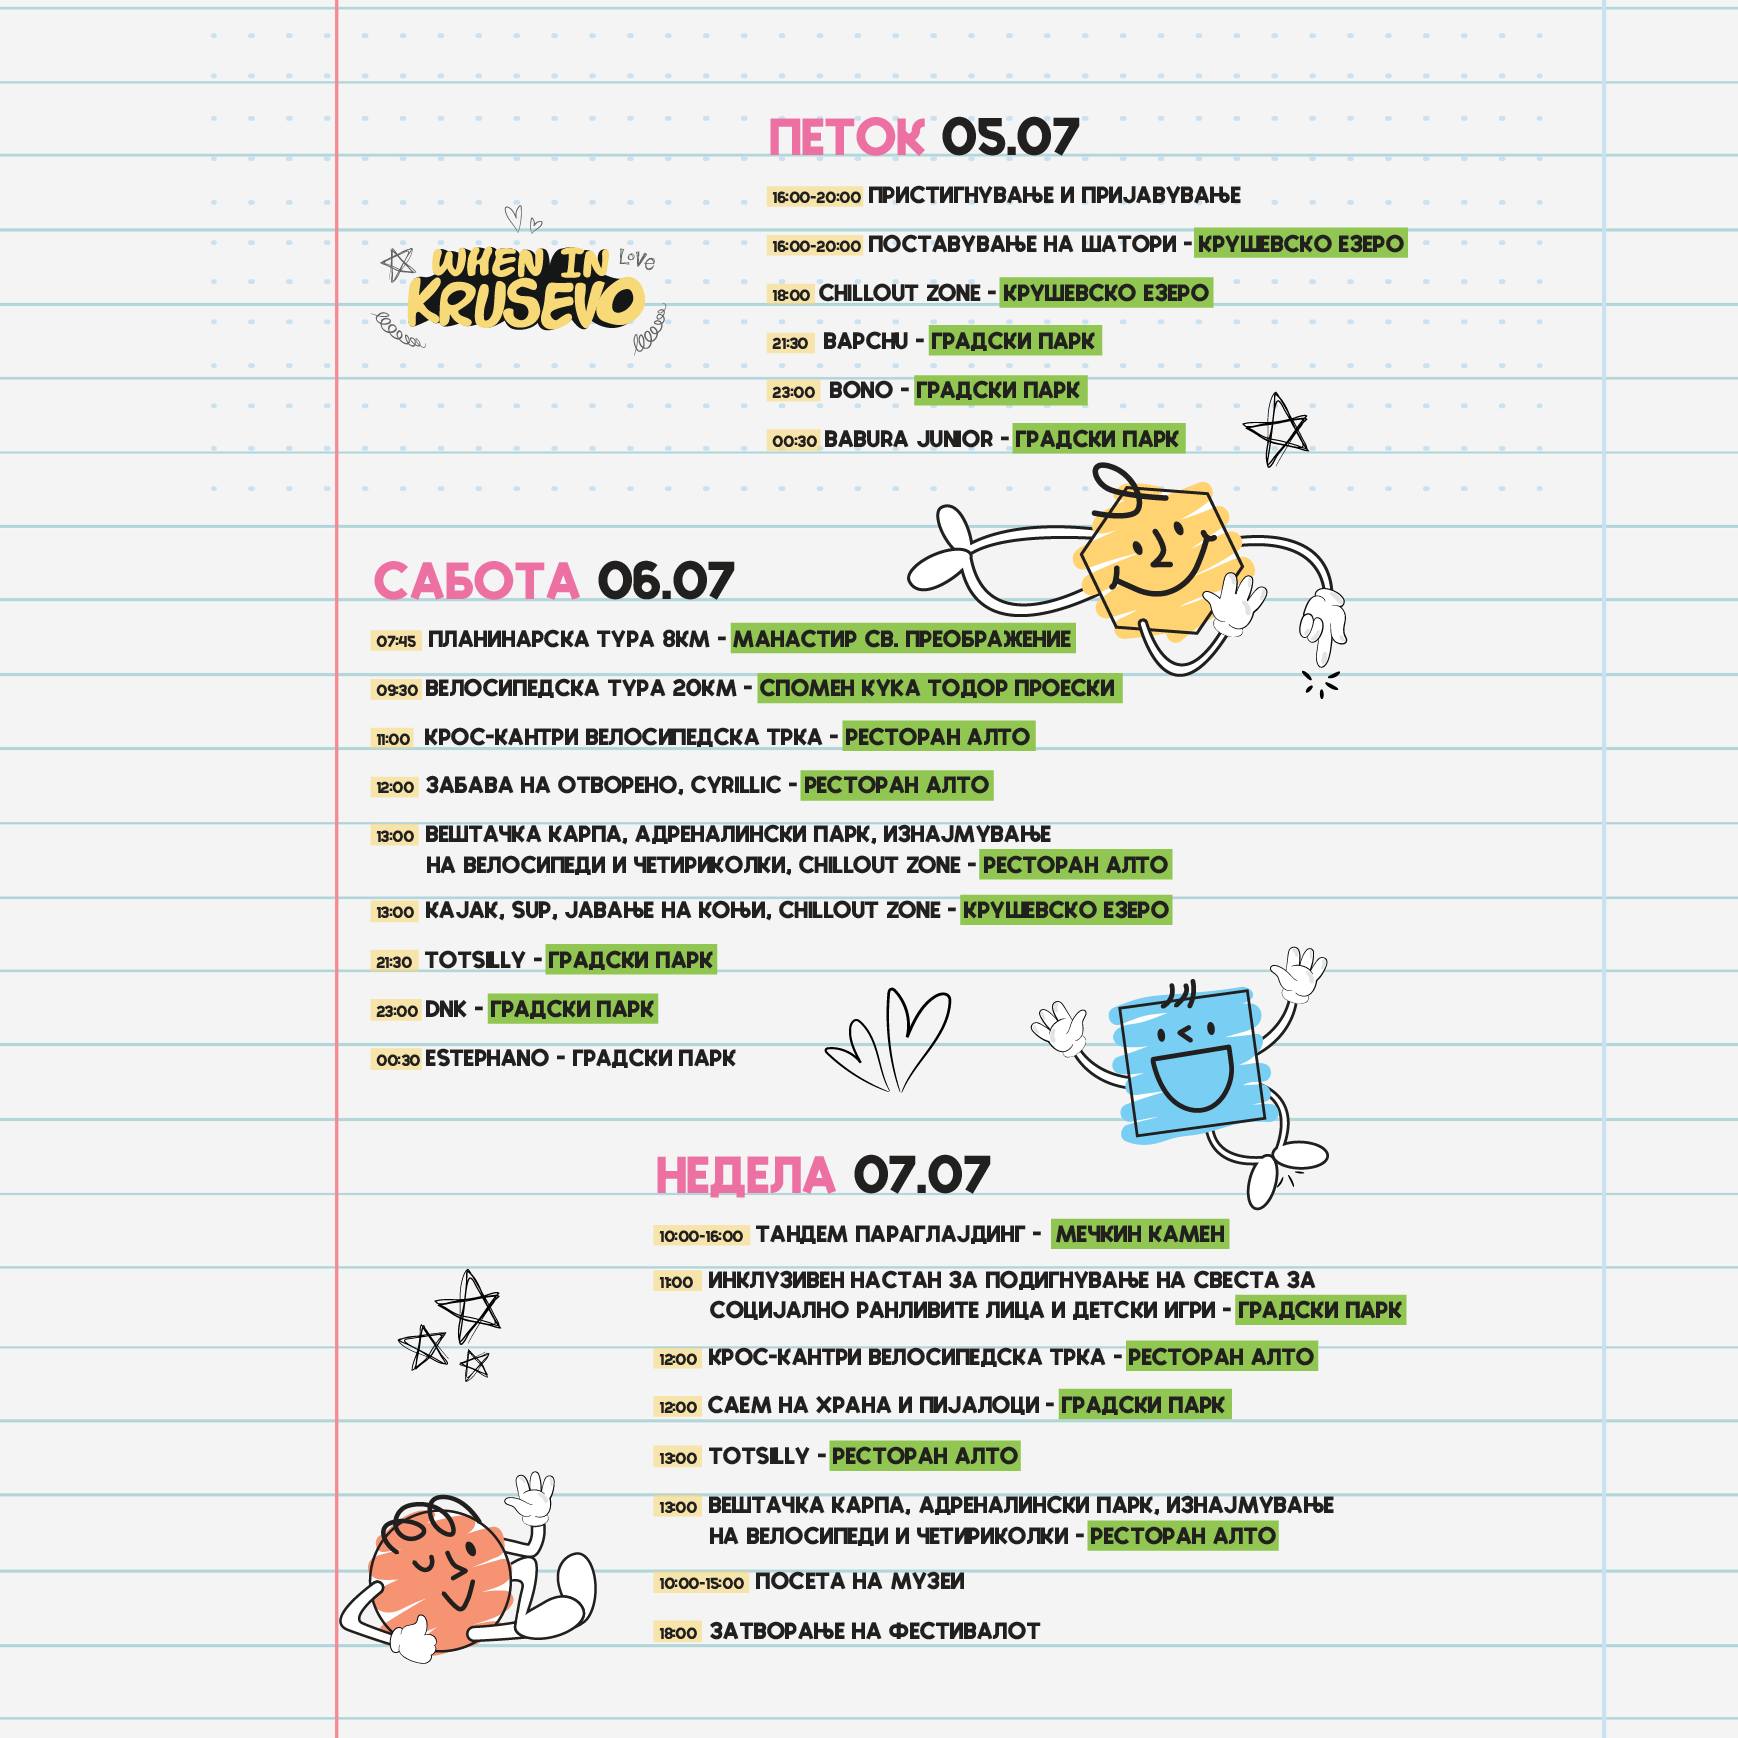 ПЕТОК 05.07
16:00-20:00 ПРИСТИГНУВАЊЕ И ПРИЈАВУВАЊЕ
16:00-20:00 ПОСТАВУВАЊЕ НА ШАТОРИ - КРУШЕВСКО ЕЗЕРО
WHEN IN LOVE
KRUSEVO
18:00 CHILLOUT ZONE - КРУШЕВСКО ЕЗЕРО
21:30 BAPCHU - ГРАДСКИ ПАРК
23:00 BONO - ГРАДСКИ ПАРК
00:30 BABURA JUNIOR - ГРАДСКИ ПАРК
САБОТА 06.07
07:45 ПЛАНИНАРСКА ТУРА 8КМ - МАНАСТИР СВ. ПРЕОБРАЖЕНИЕ
09:30 ВЕЛОСИПЕДСКА ТУРА 20КМ - СПОМЕН КУКА ТОДОР ПРОЕСКИ
11:00 КРОС-КАНТРИ ВЕЛОСИПЕДСКА ТРКА - РЕСТОРАН АЛТО
12:00 ЗАБАВА НА ОТВОРЕНО, CYRILLIC - РЕСТОРАН АЛТО
13:00 ВЕШТАЧКА КАРПА, АДРЕНАЛИНСКИ ПАРК, ИЗНАЈМУВАЊЕ
НА ВЕЛОСИПЕДИ И ЧЕТИРИКОЛКИ, CHILLOUT ZONE - РЕСТОРАН АЛТО
13:00 КАЈАК, SUP, ЈАВАЊЕ НА КОЊИ, CHILLOUT ZONE - КРУШЕВСКО ЕЗЕРО
21:30 TOTSILLY - ГРАДСКИ ПАРК
23:00 DNK - ГРАДСКИ ПАРК
00:30 ESTEPHANO - ГРАДСКИ ПАРК
НЕДЕЛА 07.07
10:00-16:00 ТАНДЕМ ПАРАГЛАЈДИНГ - МЕЧКИН КАМЕН
11:00 ИНКЛУЗИВЕН НАСТАН ЗА ПОДИГНУВАЊЕ НА СВЕСТА ЗА
СОЦИЈАЛНО РАНЛИВИТЕ ЛИЦА И ДЕТСКИ ИГРИ - ГРАДСКИ ПАРК
12:00 КРОС-КАНТРИ ВЕЛОСИПЕДСКА ТРКА - РЕСТОРАН АЛТО
12:00 САЕМ НА ХРАНА И ПИЈАЛОЦИ - ГРАДСКИ ПАРК
13:00 TOTSILLY - РЕСТОРАН АЛТО
13:00 ВЕШТАЧКА КАРПА, АДРЕНАЛИНСКИ ПАРК, ИЗНАЈМУВАЊЕ
НА ВЕЛОСИПЕДИ И ЧЕТИРИКОЛКИ - РЕСТОРАН АЛТО
10:00-15:00 ПОСЕТА НА МУЗЕИ
18:00 ЗАТВОРАЊЕ НА ФЕСТИВАЛОТ